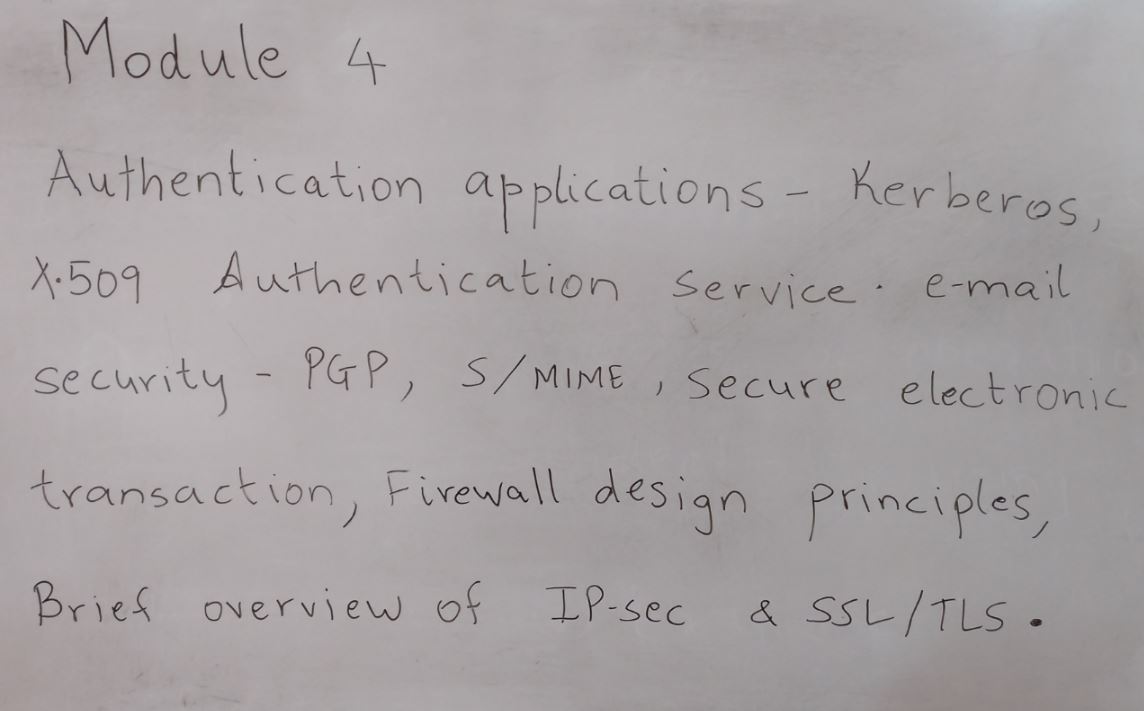 Module 4
Authentication applications - Kerberos,
X.509 Authentication Service. e-mail
security - PGP, S/MIME, Secure electronic
transaction, Firewall design principles,
Brief overview of IP-sec & SSL/TLS.